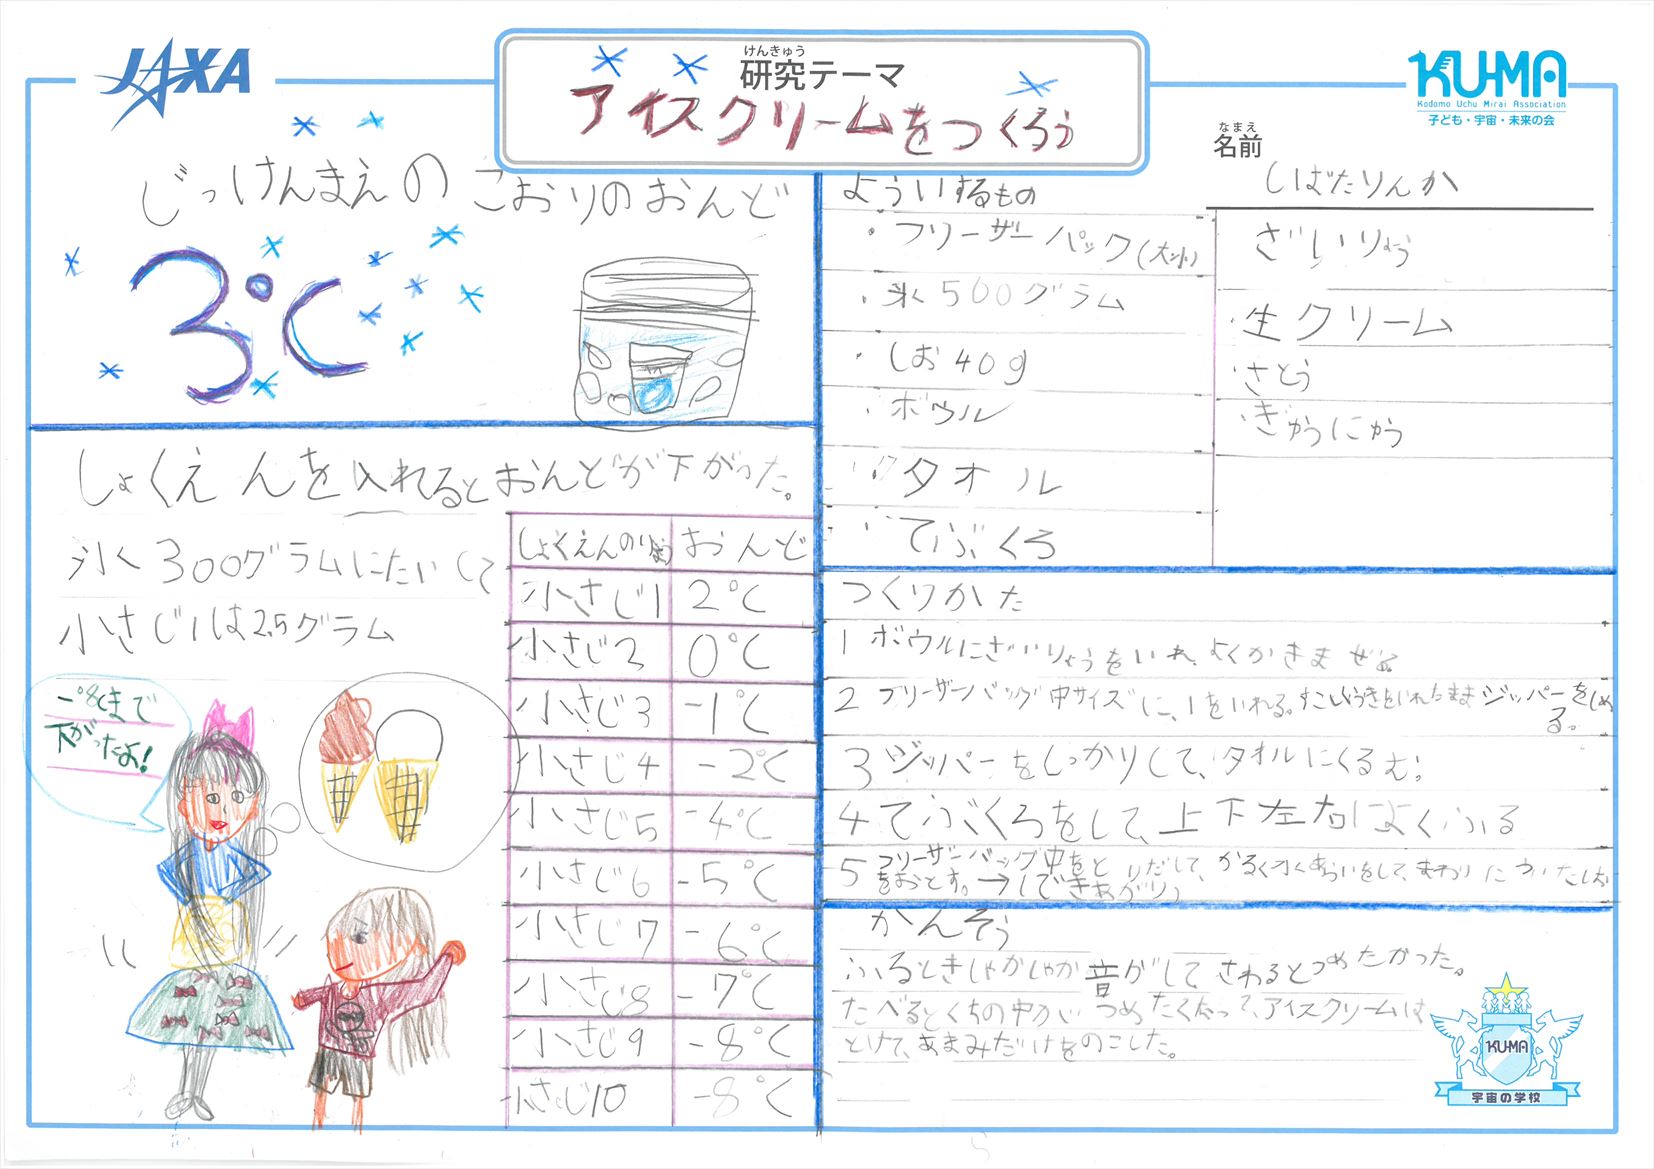 JAXA
けんきゅう
研究テーマ
アイスクリームをつくろう
KU-MA
Kodomo Uchu Mirai Association
子ども・宇宙・未来の会
なまえ
名前
しばたりんか
じっけんまえのこおりのおんど
3℃
しょくえんを入れるとおんどが下がった。
氷300グラムにたいして
小さじ1は2.5グラム
-8℃まで
下がったよ!
しょくえんのりょう おんど
小さじ1 2℃
小さじ2 0℃
小さじ3 -1℃
小さじ4 -2℃
小さじ5 -4℃
小さじ6 -5℃
小さじ7 -6℃
小さじ8 -7℃
小さじ9 -8℃
小さじ10 -8℃
よういするもの
・フリーザーパック(大小)
・氷500グラム
・しお40g
・ボウル
・タオル
・てぶくろ
ざいりょう
・生クリーム
・さとう
・ぎゅうにゅう
つくりかた
1 ボウルにざいりょうをいれ、よくかきまぜる
2 フリーザーバッグ中サイズに、1をいれる。すこしくうきをいれたままジッパーをしめ
る。
3 ジッパーをしっかりして、タオルにくるむ。
4 てぶくろをして、上下左右によくふる
5 フリーザーバッグ中をとりだして、かるく水あらいをして、まわりについたしお
をおとす。→(できあがり)
かんそう
ふるときしゃかしゃか音がしてさわるとつめたかった。
たべるとくちの中がつめたくなって、アイスクリームは
とけて、あまみだけをのこした。
KU-MA
宇宙の学校